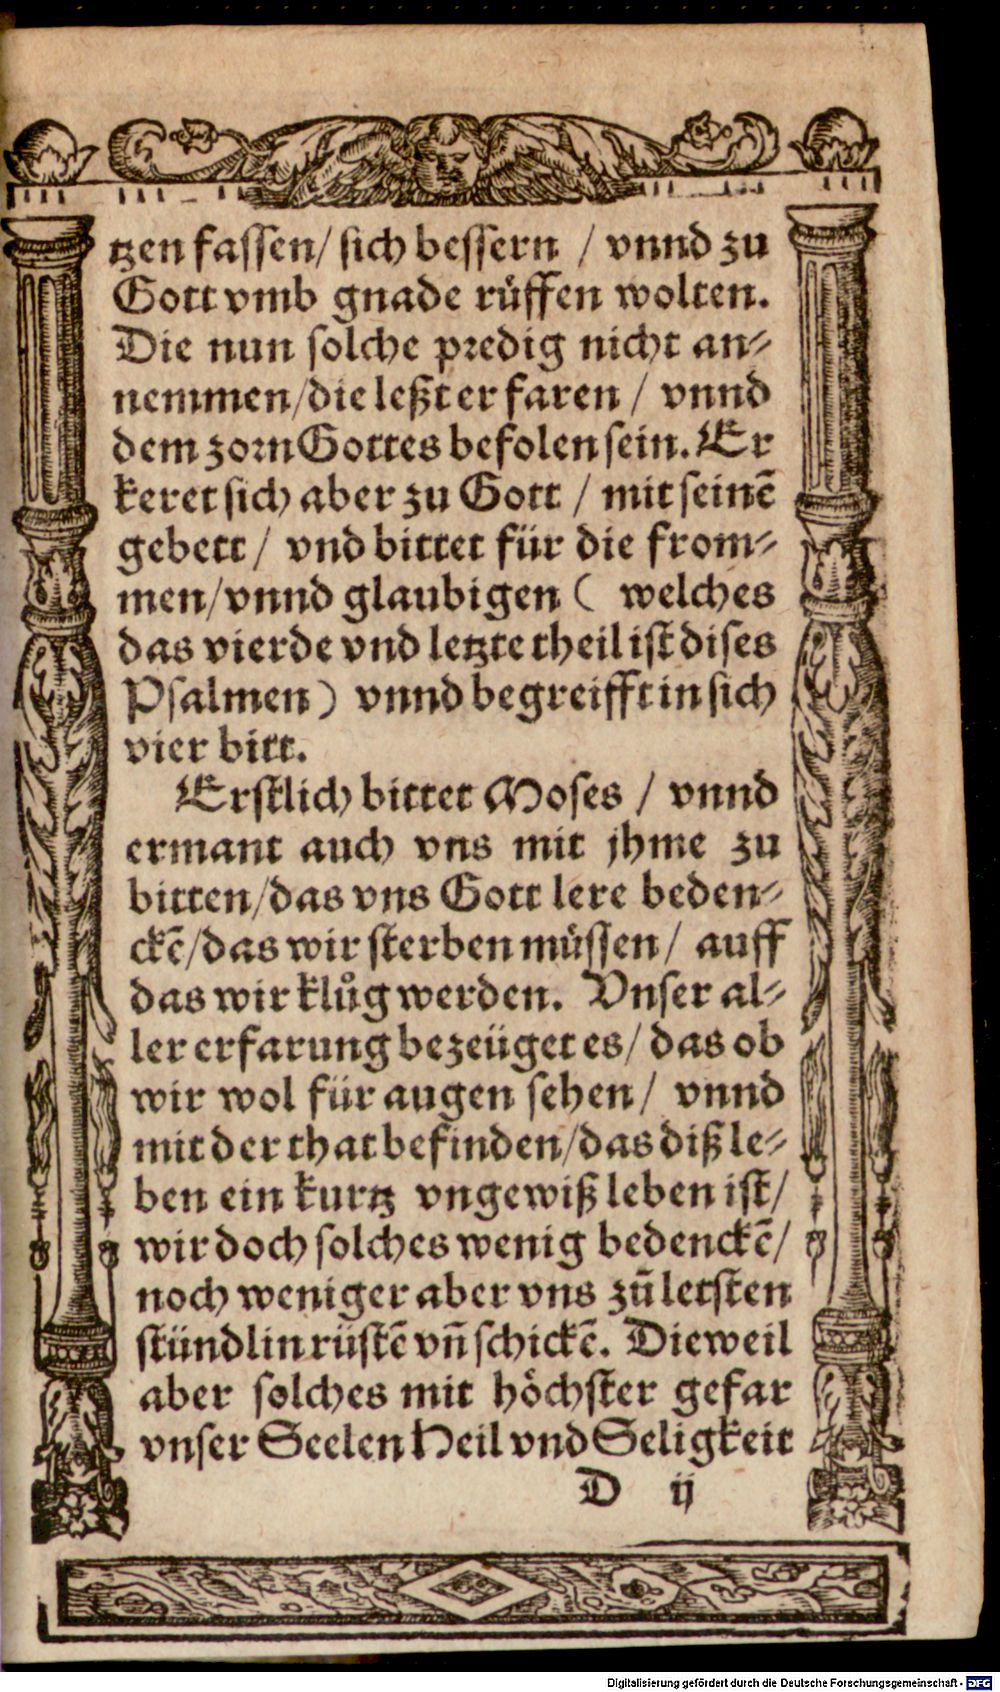 tzen fassen/ sich bessern / vnnd zu
Gott vmb gnade rüffen wolten.
Die nun solche predig nicht an⸗
nemmen/die leßt er faren / vnnd
dem zorn Gottes befolen sein. Er
keret sich aber zu Gott / mit seinē
gebett / vnd bittet für die from⸗
men/vnnd glaubigen ( welches
das vierde vnd letzte theil ist dises
Psalmen) vnnd begreifft in sich
vier bitt.
Erstlich bittet Moses / vnnd
ermant auch vns mit jhme zu
bitten/das vns Gott lere beden⸗
ckē/das wir sterben müssen/ auff
das wir klůg werden. Vnser al⸗
ler erfarung bezeüget es/ das ob
wir wol für augen sehen/ vnnd
mit der that befinden/das diß le⸗
ben ein kurtz vngewiß leben ist/
wir doch solches wenig bedenckē/
noch weniger aber vns zū letsten
stündlin rüstē vñ schickē. Dieweil
aber solches mit höchster gefar
vnser Seelen Heil vnd Seligkeit
D ij
Digitalisierung gefördert durch die Deutsche Forschungsgemeinschaft - DFG